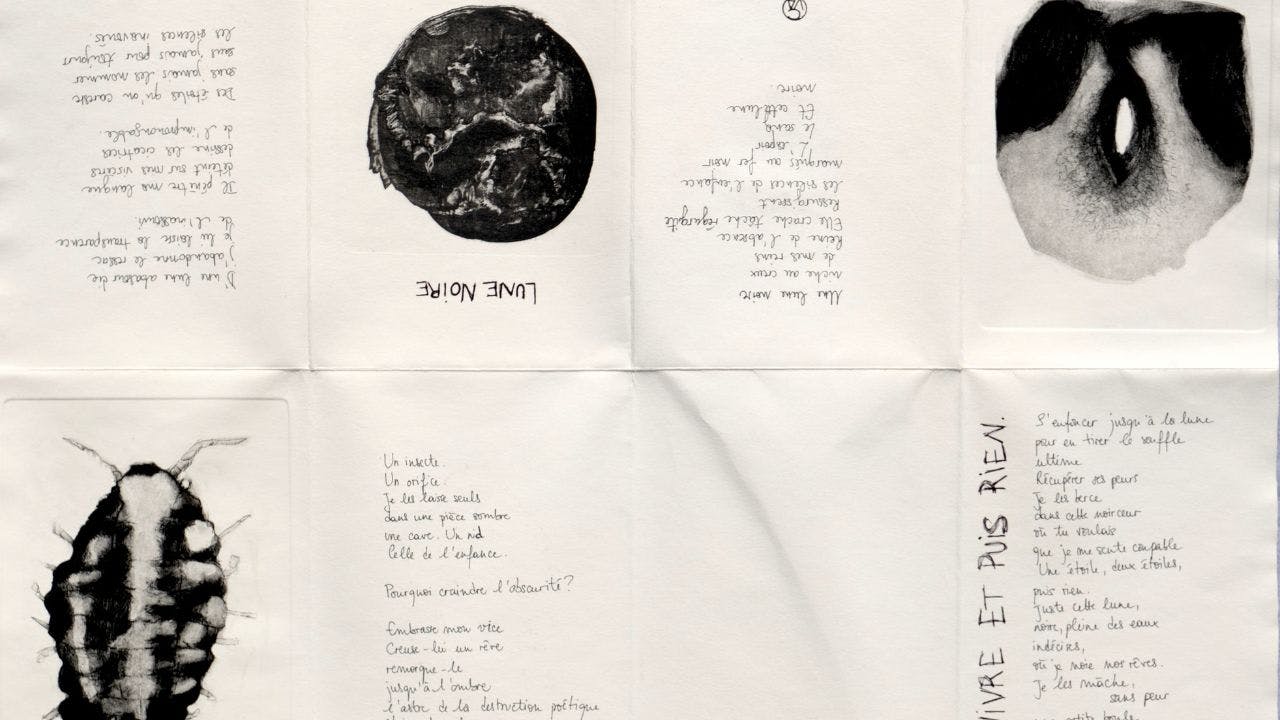 Une lune noire
niche au creux
de mes reins
Reine de l'absence
Elle crache tâche régurgite
Ressurgissent
les silences de l'enfance
marqués au fer noir
L'espoir
le sang
Et cette lune
noire.
LUNE NOIRE
D'une lune abasourdie
j'abandonne le ressac
je lui laisse la transparence
de l'inassouvi
Il pénètre ma langue
déteint sur mes viscères
dessine les cicatrices
de l'imprononçable.
Des étoiles qu'on caresse
sans jamais les nommer
sans jamais pour toujours
les silences inavoués.
Un insecte.
Un orifice.
Je les laisse seuls
dans une pièce sombre
une cave. Un nid
Celle de l'enfance.
Pourquoi craindre l'obscurité?
Embrasse mon vice
Creuse-lui un rêve
remorque-le
jusqu'à l'ombre
l'astre de la destruction poétique
VIVRE ET PUIS RIEN.
S'enfoncer jusqu'à la lune
pour en tirer le souffle
ultime
Récupérer ses peurs
Je les berce
dans cette noirceur
où tu voulais
que je me sente coupable
Une étoile, deux étoiles,
puis rien.
Juste cette lune,
noire, pleine des eaux
indécises,
où je noie nos rêves.
Je les mâche,
sans peur